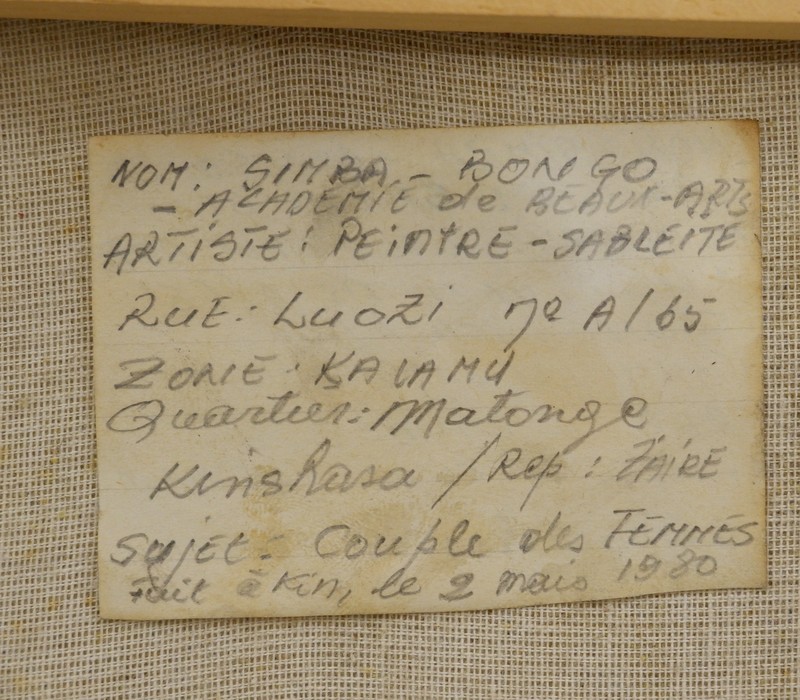 NOM: SIMBA - BONGO
- ACADEMIE de BEAUX-ARTS
ARTISTE: PEINTRE - SABLEITE
RUE: LUOZI nº A/65
ZONE: KALAMU
Quartier: Matonge
Kinshasa / Rep: ZAÏRE
SUJET: Couple des FEMMES
Fait à Kin, le 2 mais 1980